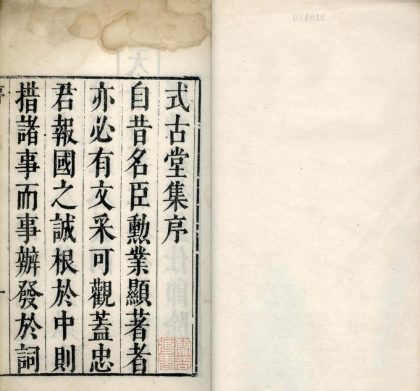 式古堂集序
自昔名臣勳業顯著者
亦必有文采可觀蓋忠
君報國之誠根於中則
措諸事而事辦發於詞